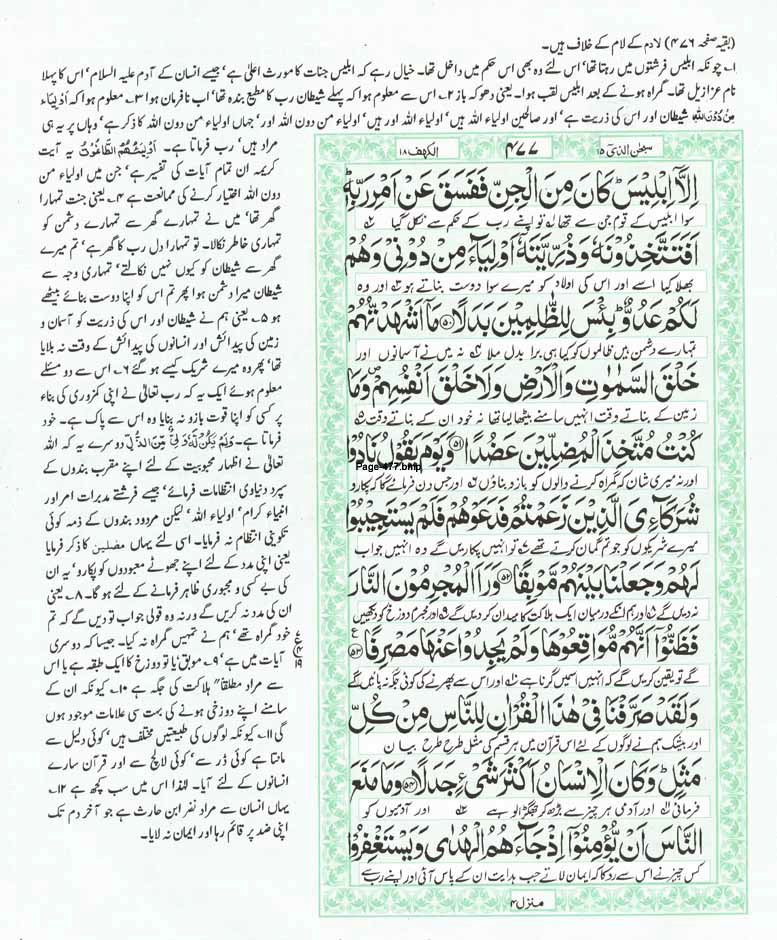 (بقیہ صفحہ ۴۷۶) لادم کے لام کے خلاف ہیں۔
۱۔ چونکہ ابلیس فرشتوں میں رہتا تھا، اس لئے وہ بھی اس حکم میں داخل تھا۔ خیال رہے کہ ابلیس جنات کا مورث اعلیٰ ہے، جیسے انسان کے آدم علیہ السلام، اس کا پہلا
نام عزازیل تھا۔ گمراہ ہونے کے بعد ابلیس لقب ہوا۔ یعنی دھوکہ باز ۲۔ اس سے معلوم ہوا کہ پہلے شیطان رب کا مطیع بندہ تھا، اب نافرمان ہوا ۳۔ معلوم ہوا کہ اَوْلِیَآءَ
مِنْ دُوْنِ اللہِ شیطان اور اس کی ذریت ہے، اور صالحین اولیاء اللہ ہیں، اولیاء اللہ اور ہیں، اولیاء من دون اللہ اور، جہاں اولیاء من دون اللہ کا ذکر ہے، وہاں پر یہ ہی
مراد ہیں، رب فرماتا ہے۔ اَوْلِیٰٓـُٔھُمُ الطَّاغُوْتُ یہ آیت
کریمہ ان تمام آیات کی تفسیر ہے، جن میں اولیاء من
دون اللہ اختیار کرنے کی ممانعت ہے ۴۔ یعنی جنت تمہارا
گھر تھا، میں نے تمہارے گھر سے تمہارے دشمن کو
تمہاری خاطر نکالا۔ تو تمہارا دل رب کا گھر ہے، تم میرے
گھر سے شیطان کو کیوں نہیں نکالتے، تمہاری وجہ سے
شیطان میرا دشمن ہوا پھر تم اس کو اپنا دوست بنائے بیٹھے
ہو ۵۔ یعنی ہم نے شیطان اور اس کی ذریت کو آسمان و
زمین کی پیدائش اور انسانوں کی پیدائش کے وقت نہ بلایا
تھا، پھر وہ میرے شریک کیسے ہو گئے ۶۔ اس سے دو مسئلے
معلوم ہوئے ایک یہ کہ رب تعالیٰ نے اپنی کمزوری کی بناء
پر کسی کو اپنا قوت بازو نہ بنایا وہ اس سے پاک ہے۔ خود
فرماتا ہے۔ وَلَمْ یَکُنْ لَّہٗ وَلِیٌّ مِّنَ الذُّلِّ دوسرے یہ کہ اللہ
تعالیٰ نے اظہار محبوبیت کے لئے اپنے مقرب بندوں کے
سپرد دنیاوی انتظامات فرمائے، جیسے فرشتے مدبرات امر اور
انبیاء کرام، اولیاء اللہ، لیکن مردود بندوں کے ذمہ کوئی
تکوینی انتظام نہ فرمایا۔ اسی لئے یہاں مضلین کا ذکر فرمایا
یعنی اپنی مدد کے لئے اپنے جھوٹے معبودوں کو پکارو، یہ ان
کی بے کسی و مجبوری ظاہر فرمانے کے لئے ہو گا۔ ۸۔ یعنی
ان کی مدد نہ کریں گے ورنہ وہ قولی جواب تو دیں گے کہ تم
خود گمراہ تھے، ہم نے تمہیں گمراہ نہ کیا۔ جیسا کہ دوسری
آیات میں ہے، ۹۔ موبق یا تو دوزخ کا ایک طبقہ ہے یا اس
سے مراد مطلقا" ہلاکت کی جگہ ہے ۱۰۔ کیونکہ ان کے
سامنے اپنے دوزخی ہونے کی بہت سی علامات موجود ہوں
گی ۱۱۔ کیونکہ لوگوں کی طبیعتیں مختلف ہیں، کوئی دلیل سے
مانتا ہے کوئی ڈر سے، کوئی لالچ سے اور قرآن سارے
انسانوں کے لئے آیا۔ لہٰذا اس میں سب کچھ ہے ۱۲۔
یہاں انسان سے مراد نفر ابن حارث ہے جو آخر دم تک
اپنی ضد پر قائم رہا اور ایمان نہ لایا۔
سبحٰن الذی ۱۵
۴۷۷
الکهف ۱۸
اِلَّاۤ اِبْلِیْسَ کَانَ مِنَ الْجِنِّ فَفَسَقَ عَنْ اَمْرِ رَبِّہٖ
سوا ابلیس کے قوم جن سے تھا ۱؎ تو اپنے رب کے حکم سے نکل گیا ۲؎
اَفَتَتَّخِذُوْنَہٗ وَذُرِّیَّتَہٗۤ اَوْلِیَآءَ مِنْ دُوْنِیْ وَھُمْ
بھلا کیا اسے اور اس کی اولاد کو میرے سوا دوست بناتے ہو ۳؎ اور وہ
لَکُمْ عَدُوٌّ بِئْسَ لِلظّٰلِمِیْنَ بَدَلًا ۵۰ مَاۤ اَشْھَدْتُّھُمْ
تمہارے دشمن ہیں ظالموں کو کیا ہی برا بدل ملا ۴؎ نہ میں نے آسمانوں اور
خَلْقَ السَّمٰوٰتِ وَالْاَرْضِ وَلَا خَلْقَ اَنْفُسِھِمْ وَمَا
زمین کے بناتے وقت انہیں سامنے بٹھا لیا تھا نہ خود ان کے بناتے وقت ۵؎
کُنْتُ مُتَّخِذَ الْمُضِلِّیْنَ عَضُدًا ۵۱ وَیَوْمَ یَقُوْلُ نَادُوْا
Page-477.bmp
اور نہ میری شان کہ گمراہ کرنے والوں کو بازو بناؤں ۶؎ اور جس دن فرمائے گا کہ پکارو
شُرَکَآءِیَ الَّذِیْنَ زَعَمْتُمْ فَدَعَوْھُمْ فَلَمْ یَسْتَجِیْبُوْا
میرے شریکوں کو جو تم گمان کرتے تھے ۷؎ تو انہیں پکاریں گے وہ انہیں جواب
لَھُمْ وَجَعَلْنَا بَیْنَھُمْ مَّوْبِقًا ۵۲ وَرَاَ الْمُجْرِمُوْنَ النَّارَ
نہ دیں گے ۸؎ اور ہم انکے درمیان ایک ہلاکت کا میدان کر دیں گے ۹؎ اور مجرم دوزخ کو دیکھیں
فَظَنُّوْۤا اَنَّھُمْ مُّوَاقِعُوْھَا وَلَمْ یَجِدُوْا عَنْھَا مَصْرِفًا ۵۳
گے تو یقین کریں گے کہ انہیں اسمیں گرنا ہے ۱۰؎ اور اس سے پھرنے کی کوئی جگہ نہ پائیں گے
وَلَقَدْ صَرَّفْنَا فِیْ ھٰذَا الْقُرْاٰنِ لِلنَّاسِ مِنْ کُلِّ
اور بیشک ہم نے لوگوں کے لئے اس قرآن میں ہر قسم کی مثل طرح طرح بیان
مَثَلٍ وَکَانَ الْاِنْسَانُ اَکْثَرَ شَیْءٍ جَدَلًا ۵۴ وَمَا مَنَعَ
فرمائی ۱۱؎ اور آدمی ہر چیز سے بڑھ کر جھگڑالو ہے ۱۲؎ اور آدمیوں کو
النَّاسَ اَنْ یُّؤْمِنُوْۤا اِذْ جَآءَھُمُ الْھُدٰی وَیَسْتَغْفِرُوْا
کس چیز نے اس سے روکا کہ ایمان لاتے جب ہدایت ان کے پاس آئی اور اپنے رب سے
منزل ۴